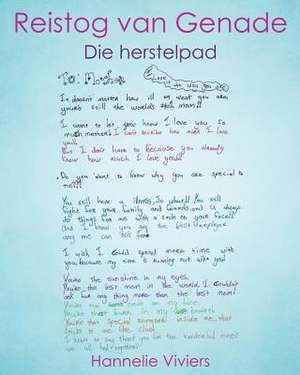 Reistog van Genade
Die herstelpad
To: Mother
I love you
It doesn't matter how ill or weak you are,
you're still the world's best mom!!
I want to let you know I love you so
much mother! I can't describe how much I love
you!!
But I don't have to because you already
know how much I love you!!
Do you want to know why you are special to
me???
You still have a illness, so you'll still
fight for your family and friends, and always
do things for me with a smile on your face!!
And I know you are the best
any one can
I wish I could spend more time with
you because my time is running out with you!
You're the sunshine in my eyes,
You're the best mom in the world, I couldn't
ask for any thing more than the best mom!
You're the on my face,
You're the in my
You're that special someone inside me that
I want to say thank you for the wonderful times
we all had together!
Hannelie Viviers